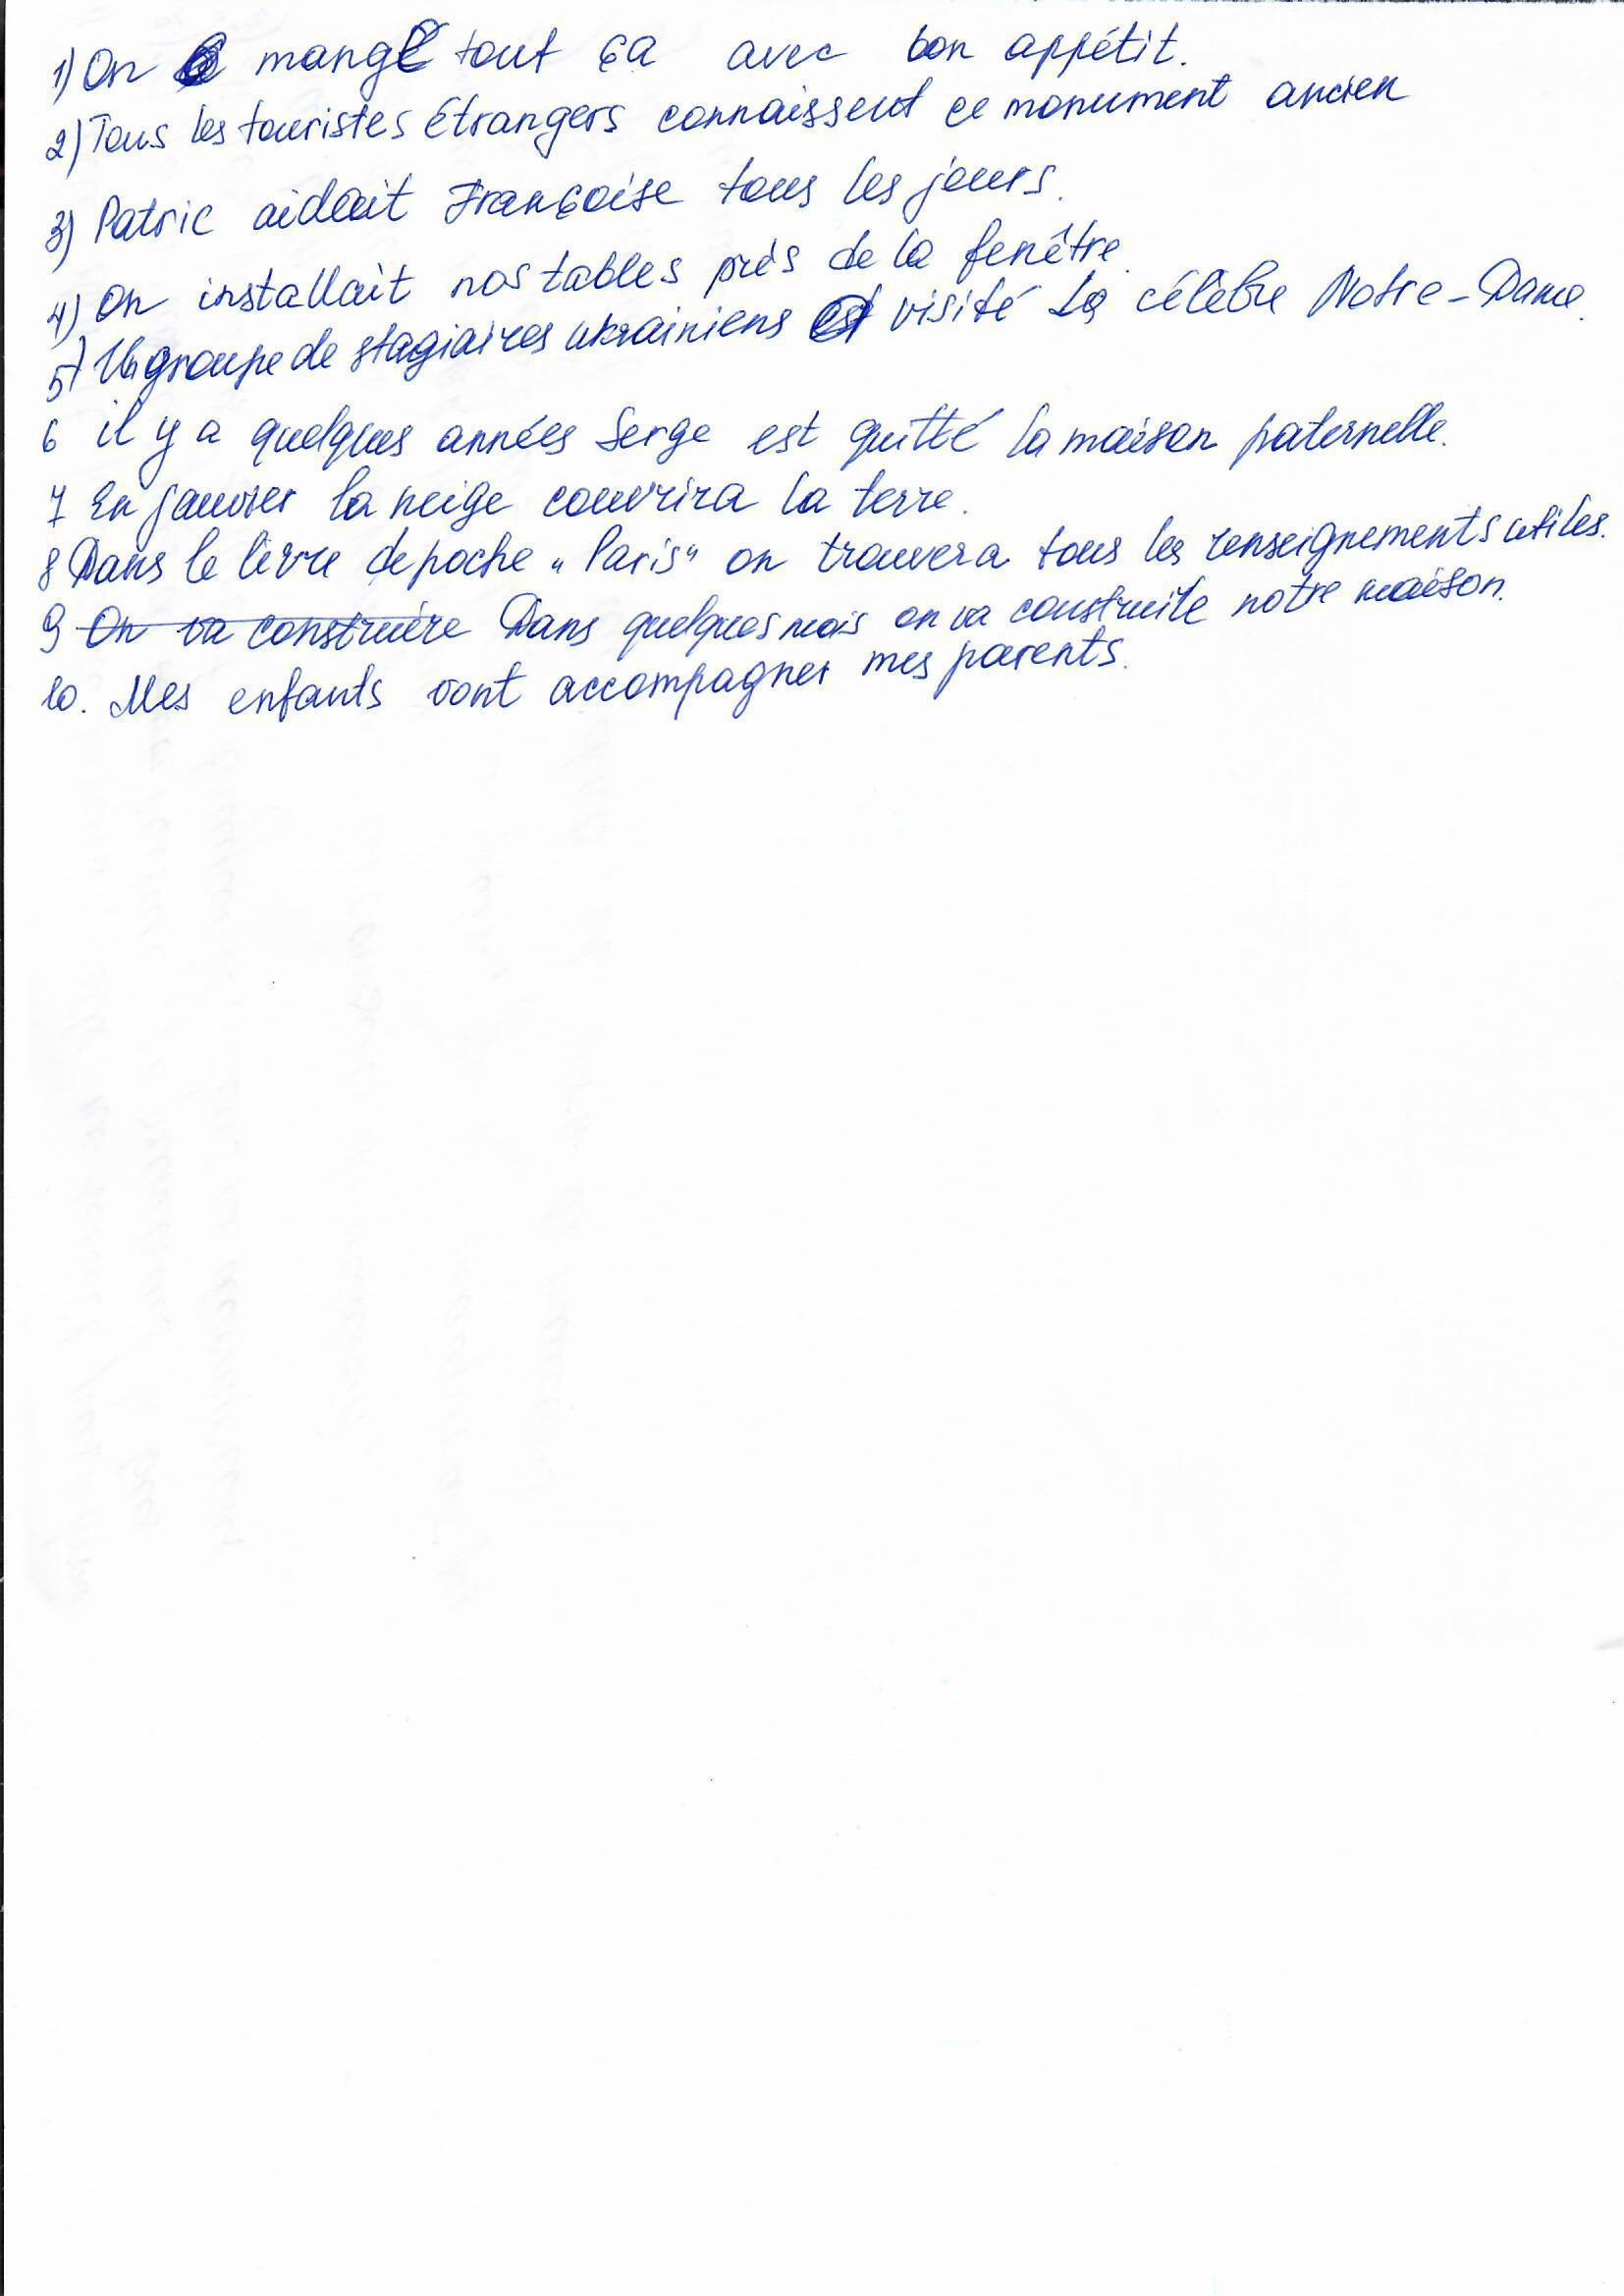 1) On mange tout ça avec bon appétit.
2) Tous les touristes étrangers connaissent ce monument ancien
3) Patric aidait Françoise tous les jours.
4) On installait nos tables près de la fenêtre.
5) Un groupe de stagiaires ukrainiens est visité la célèbre Notre-Dame.
6 il y a quelques années Serge est quitté la maison paternelle.
7 En janvier la neige couvrira la terre.
8 Dans le livre de poche „Paris“ on trouvera tous les renseignements utiles.
9 On va construire Dans quelques mois on va construire notre maison.
10. Mes enfants vont accompagner mes parents.